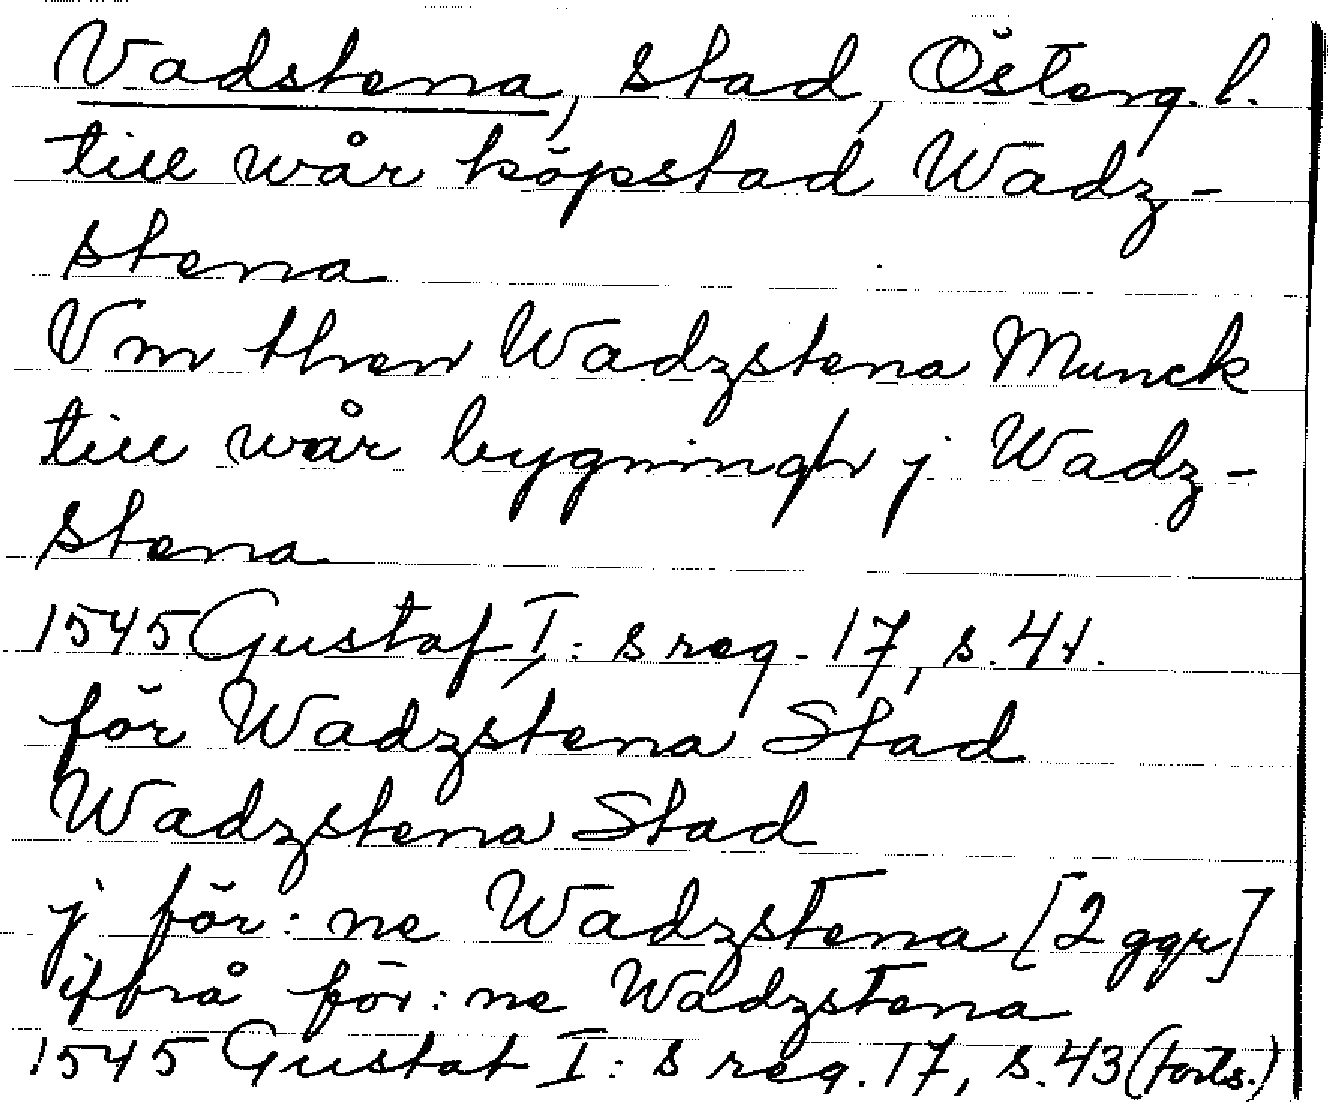 Vadstena, stad, Österg. l.
till wår köpstad Wadz-
stena
Vm then Wadzstena Munck
till wår bygningh j Wadz-
stena
1545 Gustaf I:s reg. 17, s. 41.
för Wadzstena Stad
Wadzstena Stad
j för:ne Wadzstena [2 ggr]
ifrå för:ne Wadzstena
1545 Gustaf I:s reg. 17, s. 43 (forts.)